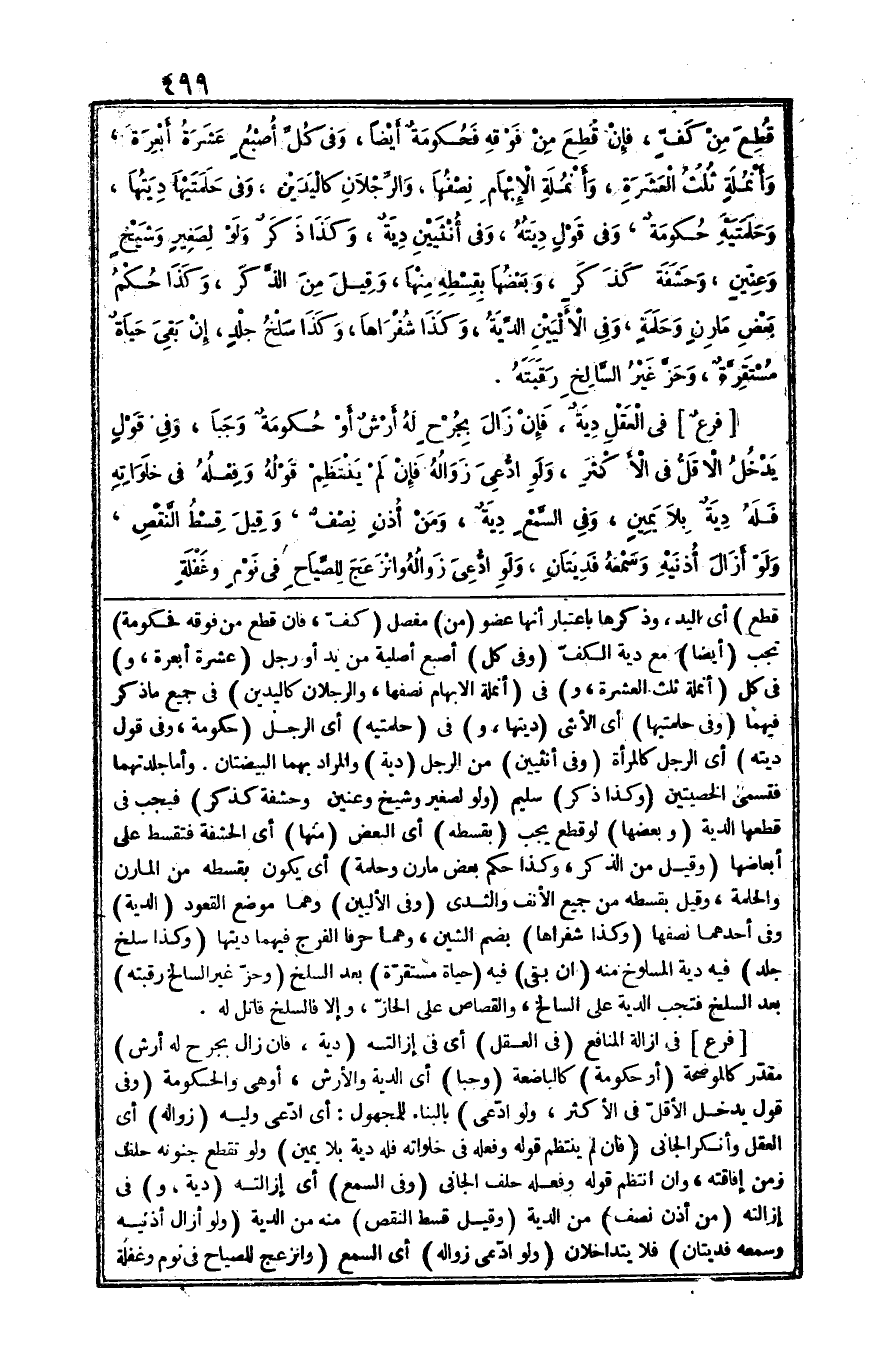 ٤٩٩
قُطِعَ مِنْ كَفٍّ ، فَإِنْ قُطِعَ مِنْ فَوْقِهِ فَحُكُومَةٌ أَيْضًا ، وَفِى كُلِّ أُصْبُعٍ عَشَرَةُ أَبْعِرَةٍ ،
وَأَنْمُلَةٍ ثُلُثُ الْعَشَرَةِ ، وَأَنْمُلَةِ الْإِبْهَامِ نِصْفُهَا ، وَالرِّجْلَانِ كَالْيَدَيْنِ ، وَفِى حَلَمَتَيْهَا دِيَتُهَا ،
وَحَلَمَتَيْهِ حُكُومَةٌ ، وَفِى قَوْلٍ دِيَتُهُ ، وَفِى أُنْثَيَيْنِ دِيَةٌ ، وَكَذَا ذَكَرٌ وَلَوْ لِصَغِيرٍ وَشَيْخٍ
وَعِنِّينٍ ، وَحَشَفَةٌ كَذَكَرٍ ، وَبَعْضُهَا بِقِسْطِهِ مِنْهَا ، وَقِيلَ مِنَ الذَّكَرِ ، وَكَذَا حُكْمُ
بَعْضِ مَارِنٍ وَحَلَمَةٍ ، وَفِى الْأَلْيَيْنِ الدِّيَةُ ، وَكَذَا شُفْرَاهَا ، وَكَذَا سَلْخُ جِلْدٍ ، إِنْ بَقِىَ حَيَاةٌ
مُسْتَقِرَّةٌ ، وَحَزَّ غَيْرُ السَّالِخِ رَقَبَتَهُ .
[ فرعٌ ] فى الْعَقْلِ دِيَةٌ ، فَإِنْ زَالَ بِجُرْحٍ لَهُ أَرْشٌ أَوْ حُكُومَةٌ وَجَبَا ، وَفِى قَوْلٍ
يَدْخُلُ الْأَقَلُّ فى الْأَكْثَرِ ، وَلَوِ ادُّعِىَ زَوَالُهُ فَإِنْ لَمْ يَنْتَظِمْ قَوْلُهُ وَفِعْلُهُ فى خَلَوَاتِهِ
فَلَهُ دِيَةٌ بِلَا يَمِينٍ ، وَفِى السَّمْعِ دِيَةٌ ، وَمِنْ أُذُنٍ نِصْفٌ ، وَقِيلَ قِسْطُ النَّقْصِ ،
وَلَوْ أَزَالَ أُذُنَيْهِ وَسَمْعَهُ فَدِيَتَانِ ، وَلَوِ ادُّعِىَ زَوَالُهُ وَانْزَعَجَ لِلصِّيَاحِ فى نَوْمٍ وَغَفْلَةٍ
قطع ) أى اليد ، وذكرها باعتبار أنها عضو (من) مفصل ( كفّ ، فان قطع من فوقه فحكومة)
تجب (أيضا) مع دية الكفّ (وفى كل) أصبع أصلية من يد أو رجل (عشرة أبعرة ، و)
فى كل ( أنملة ثلث العشرة ، و) فى ( أنملة الابهام نصفها ، والرجلان كاليدين ) فى جميع ماذكر
فيهما (وفى حلمتيها) أى الأنثى (ديتها ، و) فى (حلمتيه) أى الرجل (حكومة ، وفى قول
ديته ) أى الرجل كالمرأة (وفى أنثيين) من الرجل (دية) والمراد بهما البيضتان . وأماجلدتهما
فتسمى الخصيتين (وكذا ذكر) سليم (ولو لصغير وشيخ وعنين وحشفة كذكر) فيجب فى
قطعها الدية (وبعضها) لوقطع يجب (بقسطه) أى البعض (منها) أى الحشفة فتقسط على
أبعاضها (وقيل من الذكر ، وكذا حكم بعض مارن وحلمة) أى يكون بقسطه من المارن
والحلمة ، وقيل بقسطه من جميع الأنف والثدى (وفى الأليين) وهما موضع القعود (الدية)
وفى أحدهما نصفها (وكذا شفراها) بضم الشين ، وهما حرفا الفرج فيهما ديتها (وكذا سلخ
جلد) فيه دية المسلوخ منه (ان بقى) فيه (حياة مستقرّة) بعد السلخ (وحزّ غيرالسالخ رقبته)
بعد السلخ فتجب الدية على السالخ ، والقصاص على الحازّ ، و إلا فالسلخ قاتل له .
[ فرع ] فى ازالة المنافع (فى العقل) أى فى إزالته (دية ، فان زال بجرح له أرش)
مقدّر كالموضحة (أو حكومة) كالباضعة (وجبا) أى الدية والأرش ، أوهى والحكومة (وفى
قول يدخل الأقلّ فى الأكثر ، ولو ادّعى) بالبناء للمجهول : أى ادّعى وليه (زواله) أى
العقل وأنكرالجانى (فان لم ينتظم قوله وفعله فى خلواته فله دية بلا يمين) ولو تقطع جنونه حلف
زمن إفاقته ، وان انتظم قوله وفعله حلف الجانى (وفى السمع) أى إزالته (دية ، و) فى
إزالته (من أذن نصف) من الدية (وقيل قسط النقص) منه من الدية (ولو أزال أذنيه
وسمعه فديتان) فلا يتداخلان (ولو ادّعى زواله) أى السمع (وانزعج للصياح فى نوم وغفلة